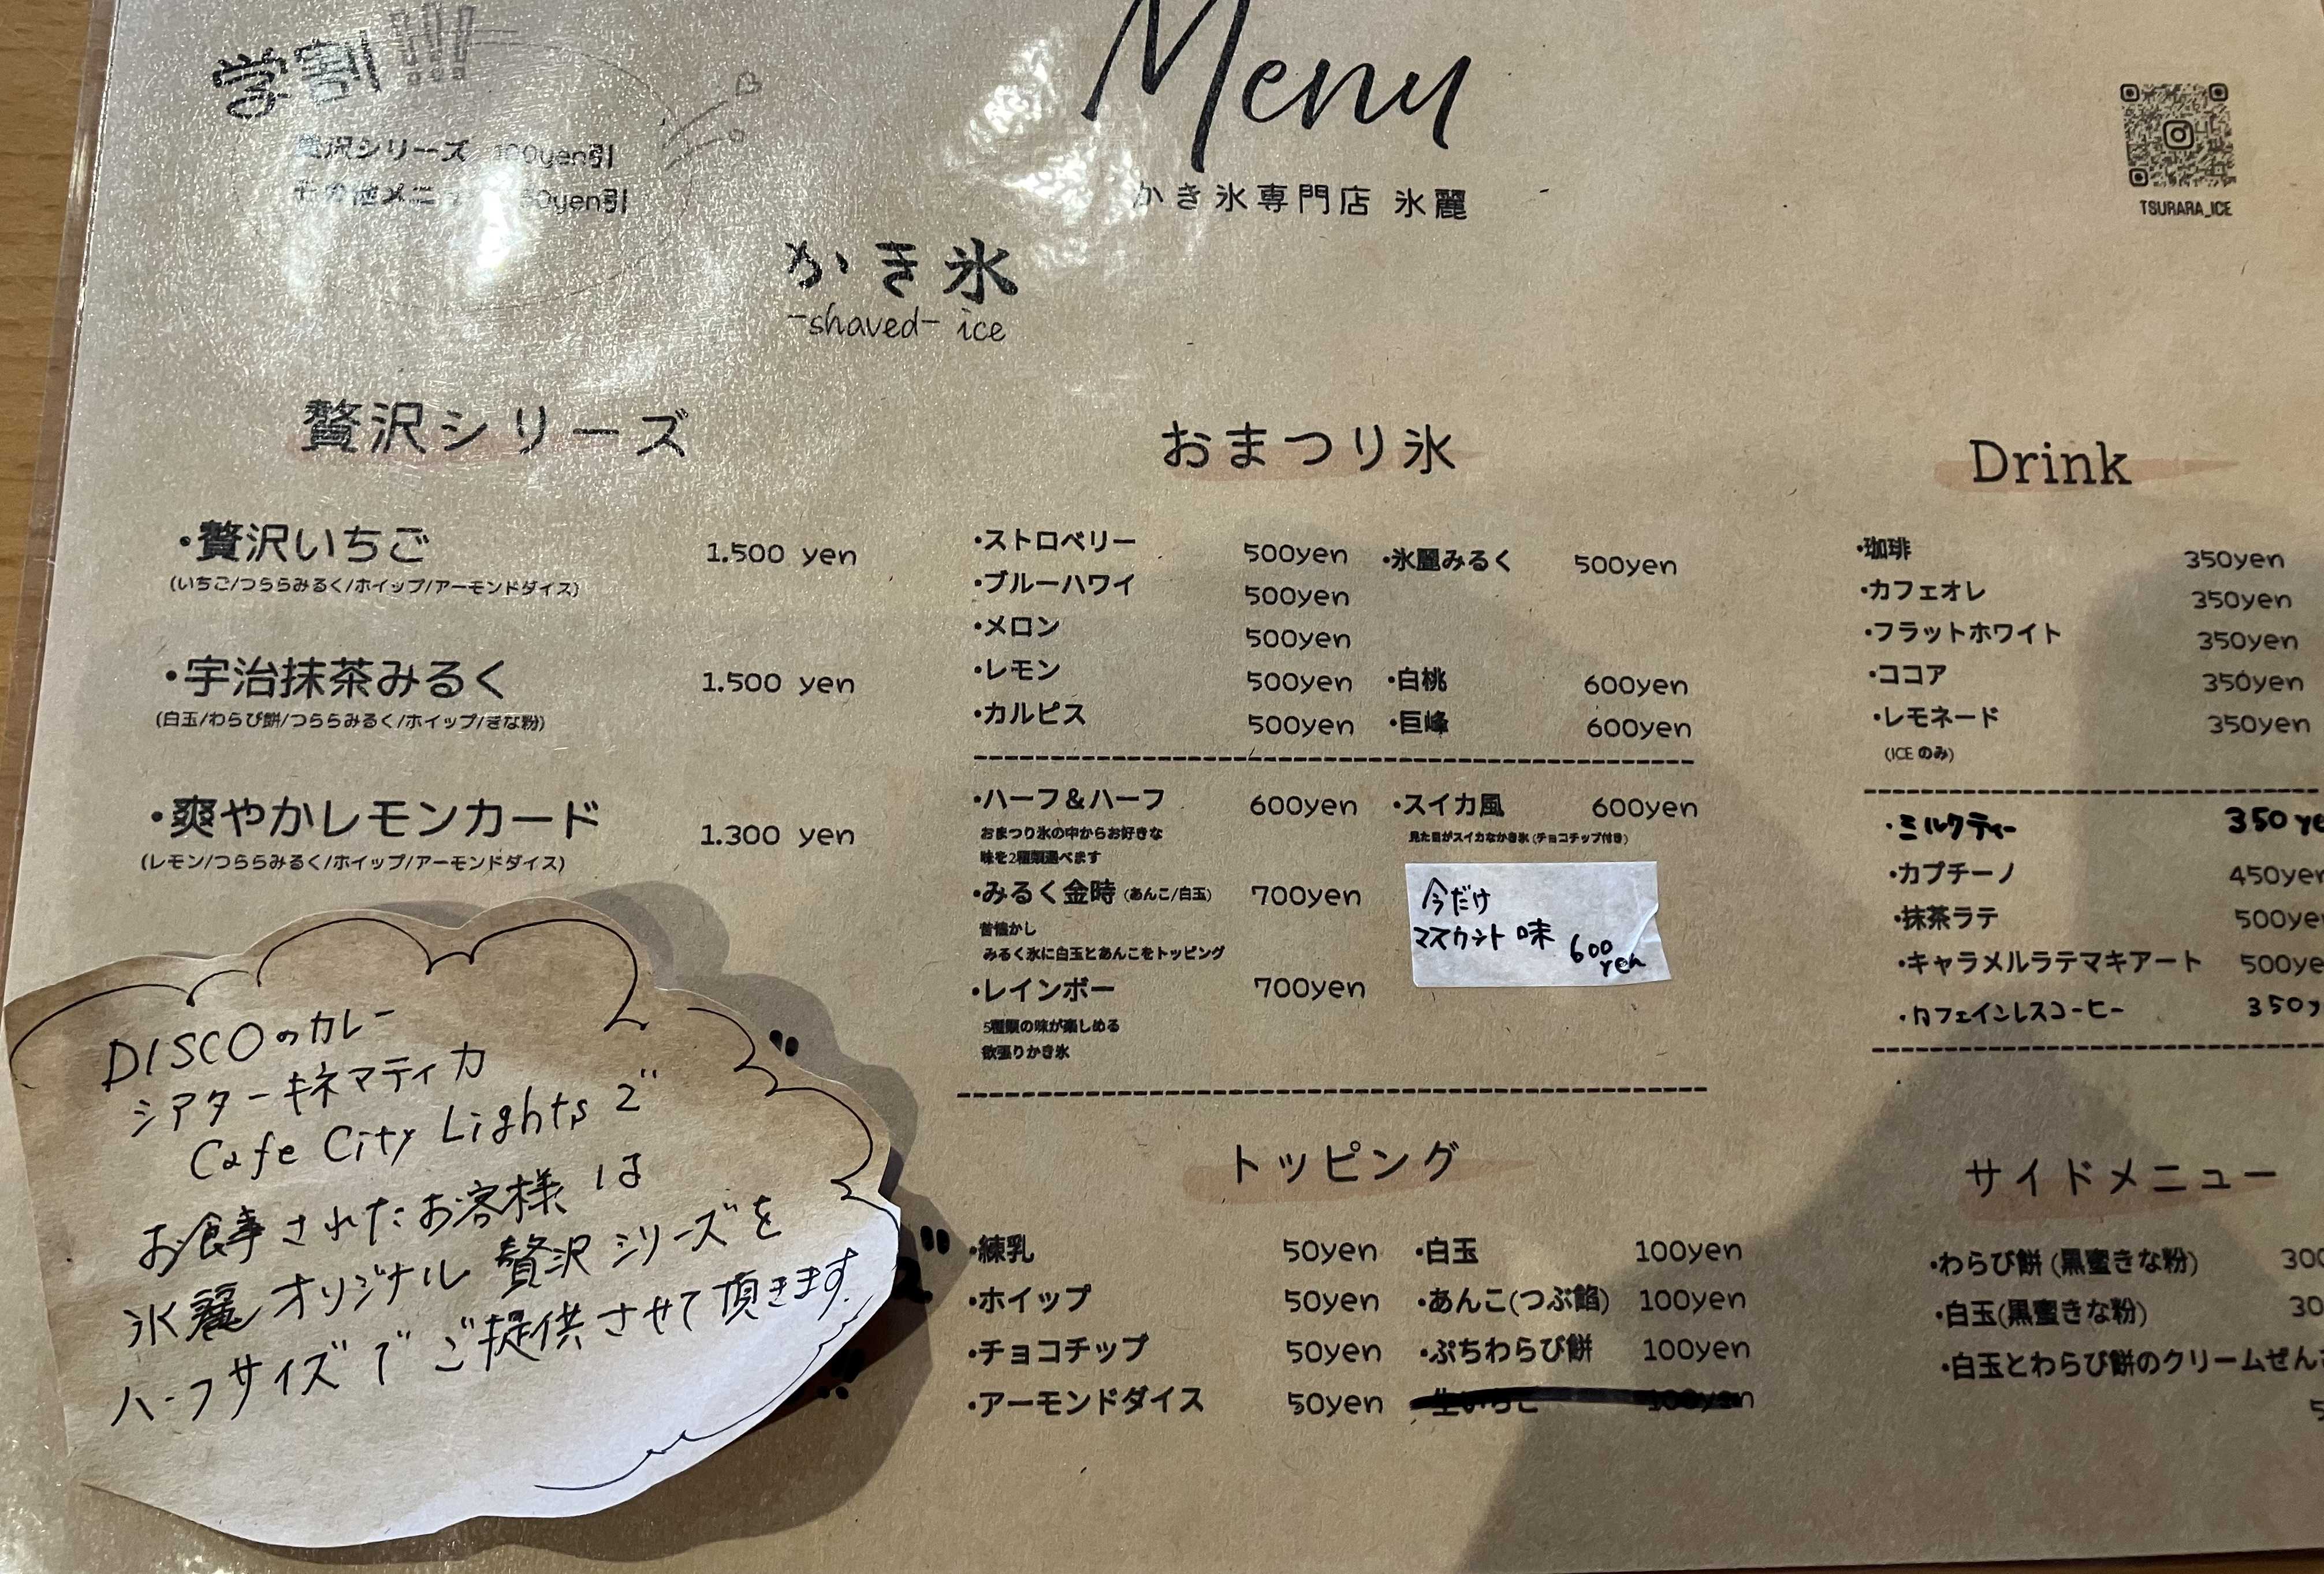 学割!!!
贅沢シリーズ 100yen引
その他メニュー 50yen引
Menu
かき氷専門店 氷麗
TSURARA_ICE
かき氷
-shaved- ice
贅沢シリーズ
・贅沢いちご 1.500 yen
(いちご/つららみるく/ホイップ/アーモンドダイス)
・宇治抹茶みるく 1.500 yen
(白玉/わらび餅/つららみるく/ホイップ/きな粉)
・爽やかレモンカード 1.300 yen
(レモン/つららみるく/ホイップ/アーモンドダイス)
DISCOのカレー
シアターキネマティカ
Cafe City Lights 2"
お食事されたお客様は
氷麗オリジナル贅沢シリーズを
ハーフサイズでご提供させて頂きます.
おまつり氷
・ストロベリー 500yen
・ブルーハワイ 500yen
・メロン 500yen
・レモン 500yen
・カルピス 500yen
・氷麗みるく 500yen
・白桃 600yen
・巨峰 600yen
・ハーフ&ハーフ 600yen
おまつり氷の中からお好きな
味を2種類選べます
・みるく金時 (あんこ/白玉) 700yen
昔懐かし
みるく氷に白玉とあんこをトッピング
・レインボー 700yen
5種類の味が楽しめる
欲張りかき氷
・スイカ風 600yen
見た目がスイカなかき氷 (チョコチップ付き)
今だけ
マスカット味 600
yen
トッピング
・練乳 50yen
・ホイップ 50yen
・チョコチップ 50yen
・アーモンドダイス 50yen
・白玉 100yen
・あんこ(つぶ餡) 100yen
・ぷちわらび餅 100yen
生いちご 100yen
Drink
・珈琲 350yen
・カフェオレ 350yen
・フラットホワイト 350yen
・ココア 350yen
・レモネード 350yen
(ICE のみ)
・ミルクティー 350 ye
・カプチーノ 450yen
・抹茶ラテ 500ye
・キャラメルラテマキアート 500ye
・カフェインレスコーヒー 350y
サイドメニュー
・わらび餅 (黒蜜きな粉) 300
・白玉(黒蜜きな粉) 30
・白玉とわらび餅のクリームぜん
5